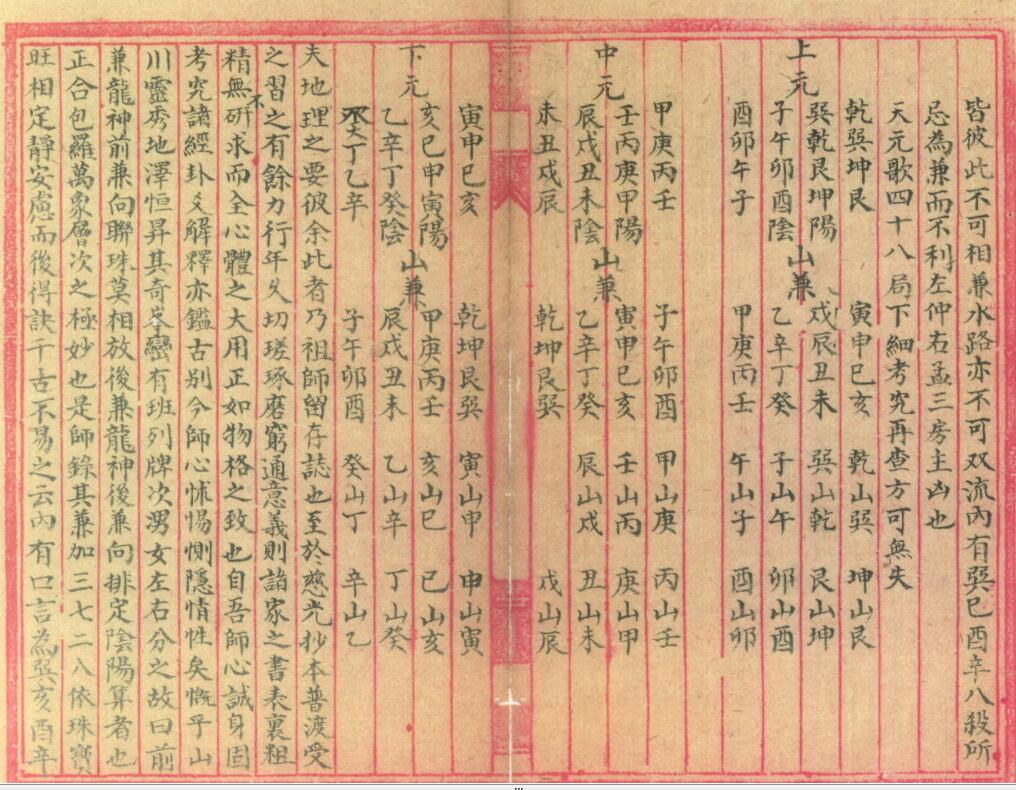 皆彼此不可相兼水路亦不可双流內有巽巳酉辛八殺所
忌為兼而不利左仲右孟三房主凶也
天元歌四十八局下細考究再查方可無失
乾巽坤艮 寅申巳亥 乾山巽 坤山艮
上元 巽乾艮坤陽 山兼 戌辰丑未 巽山乾 艮山坤
子午卯酉陰 乙辛丁癸 子山午 卯山酉
酉卯午子 甲庚丙壬 午山子 酉山卯
甲庚丙壬 子午卯酉 甲山庚 丙山壬
中元 壬丙庚甲陽 山兼 寅申巳亥 壬山丙 庚山甲
辰戌丑未陰 乙辛丁癸 辰山戌 丑山未
未丑戌辰 乾坤艮巽 戌山辰
寅申巳亥 乾坤艮巽 寅山申 申山寅
下元 亥巳申寅陽 山兼 甲庚丙壬 亥山巳 巳山亥
乙辛丁癸陰 辰戌丑未 乙山辛 丁山癸
癸丁乙辛 子午卯酉 癸山丁 辛山乙
夫地理之要彼余此者乃祖師留存誌也至於慈光抄本普渡受
之習之有餘力行年久切瑳琢磨窮通意義則諸家之書表裏粗
精無不研求而全心體之大用正如物格之致也自吾師心誠身固
考究諸經卦爻解釋亦鑑古別今師心怵惕惻隱情性矣慨乎山
川靈秀地澤恒昇其奇峯巒有班列牌次男女左右分之故曰前
兼龍神前兼向聯珠莫相放後兼龍神後兼向排定陰陽算者也
正合包羅萬象層次之極妙也是師錄其兼加三七二八依珠寶
旺相定靜安慮而後得訣千古不易之云內有口言為巽亥酉辛